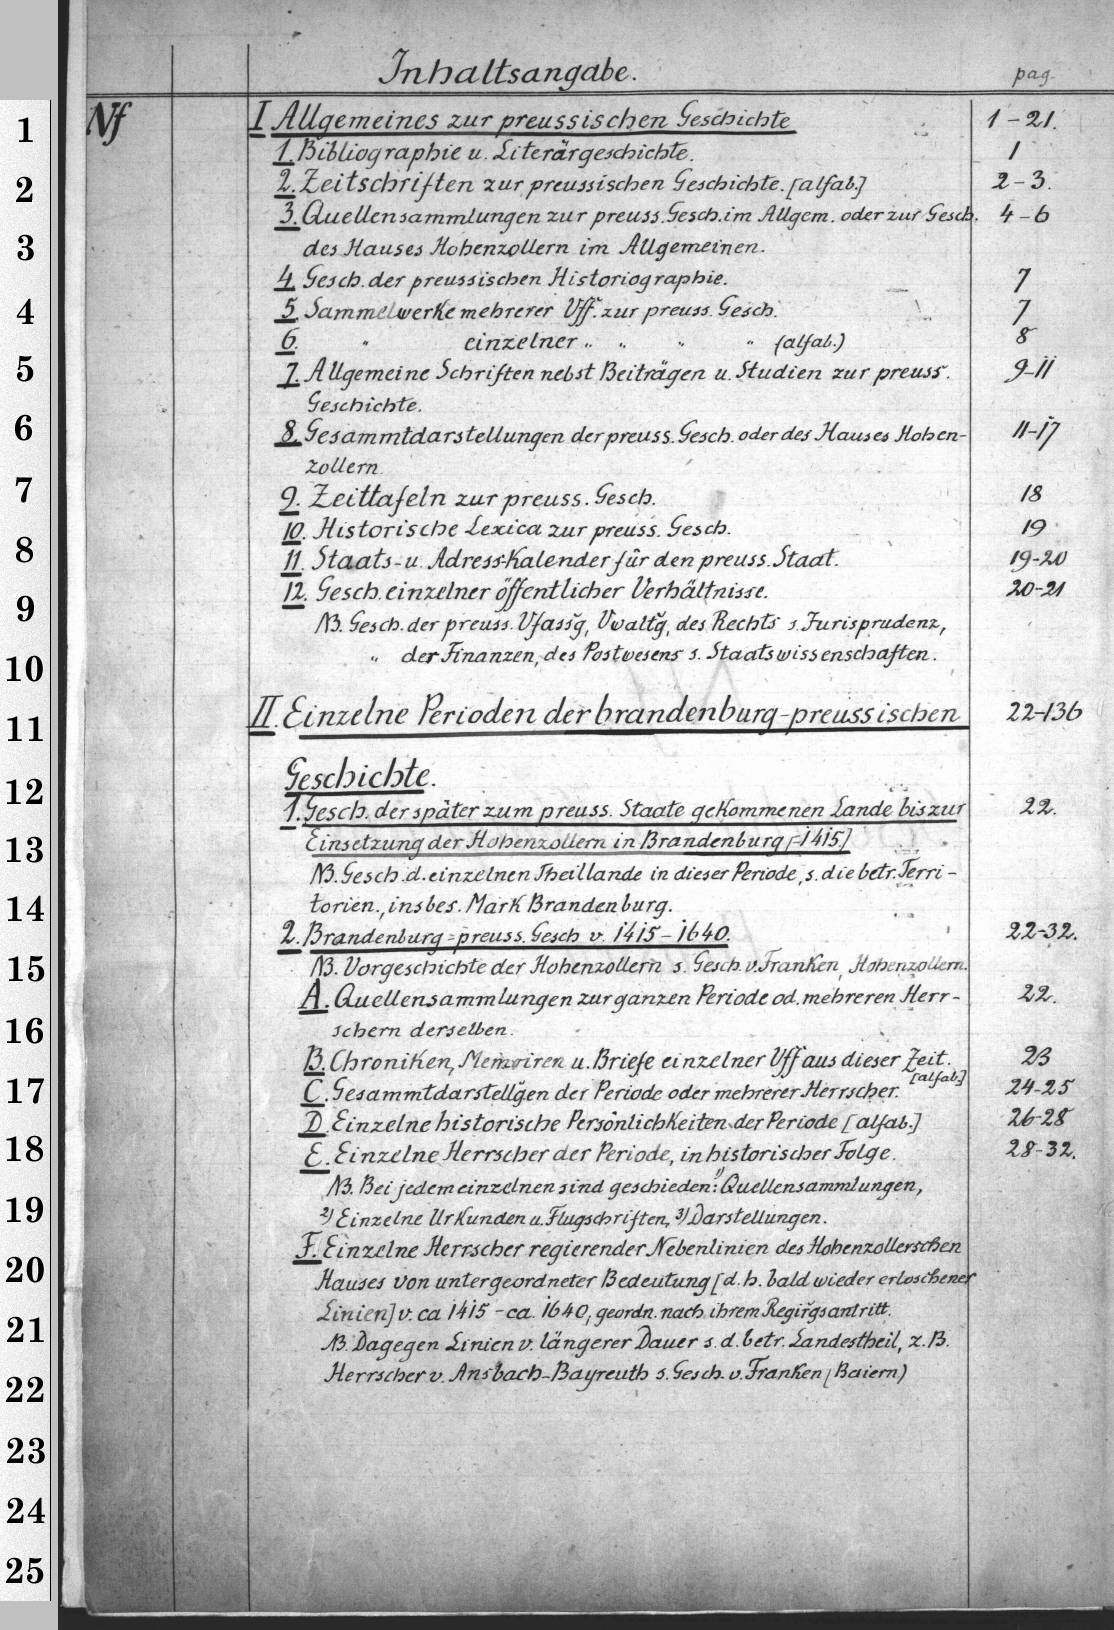 Inhaltsangabe. pag.
Nf I Allgemeines zur preussischen Geschichte 1-21.
1. Bibliographie u. Literärgeschichte. 1
2. Zeitschriften zur preussischen Geschichte. [alfab.] 2-3.
3. Quellensammlungen zur preuss. Gesch. im Allgem. oder zur Gesch. 4-6
des Hauses Hohenzollern im Allgemeinen.
4. Gesch. der preussischen Historiographie. 7
5. Sammelwerke mehrerer Vff. zur preuss. Gesch. 7
6. " einzelner " " " " (alfab.) 8
7. Allgemeine Schriften nebst Beiträgen u. Studien zur preuss. 9-11
Geschichte.
8. Gesammtdarstellungen der preuss. Gesch. oder des Hauses Hohen- 11-17
zollern
9. Zeittafeln zur preuss. Gesch. 18
10. Historische Lexica zur preuss. Gesch. 19
11. Staats- u. Adress-Kalender für den preuss. Staat. 19-20
12. Gesch. einzelner öffentlicher Verhältnisse. 20-21
NB. Gesch. der preuss. Vfassg, Vwaltg, des Rechts s. Jurisprudenz,
" der Finanzen, des Postwesens s. Staatswissenschaften.
II. Einzelne Perioden der brandenburg-preussischen 22-136
Geschichte.
1. Gesch. der später zum preuss. Staate gekommenen Lande bis zur 22.
Einsetzung der Hohenzollern in Brandenburg [-1415]
NB. Gesch. d. einzelnen Theillande in dieser Periode, s. die betr. Terri-
torien., insbes. Mark Brandenburg.
2. Brandenburg-preuss. Gesch v. 1415-1640. 22-32.
NB. Vorgeschichte der Hohenzollern s. Gesch. v. Franken, Hohenzollern.
A. Quellensammlungen zur ganzen Periode od. mehreren Herr- 22.
schern derselben.
B. Chroniken, Memoiren u. Briefe einzelner Vff aus dieser Zeit. 23
[alfab]
C. Gesammtdarstellgen der Periode oder mehrerer Herrscher. 24-25
D. Einzelne historische Persönlichkeiten der Periode [alfab.] 26-28
E. Einzelne Herrscher der Periode, in historischer Folge. 28-32.
NB. Bei jedem einzelnen sind geschieden: 1) Quellensammlungen,
2) Einzelne Urkunden u. Flugschriften, 3) Darstellungen.
F. Einzelne Herrscher regierender Nebenlinien des Hohenzollerschen
Hauses von untergeordneter Bedeutung [d. h. bald wieder erloschener
Linien] v. ca 1415 - ca. 1640, geordn. nach ihrem Regirgsantritt.
NB. Dagegen Linien v. längerer Dauer s. d. betr. Landestheil, z. B.
Herrscher v. Ansbach-Bayreuth s. Gesch. v. Franken (Baiern)
1
2
3
4
5
6
7
8
9
10
11
12
13
14
15
16
17
18
19
20
21
22
23
24
25